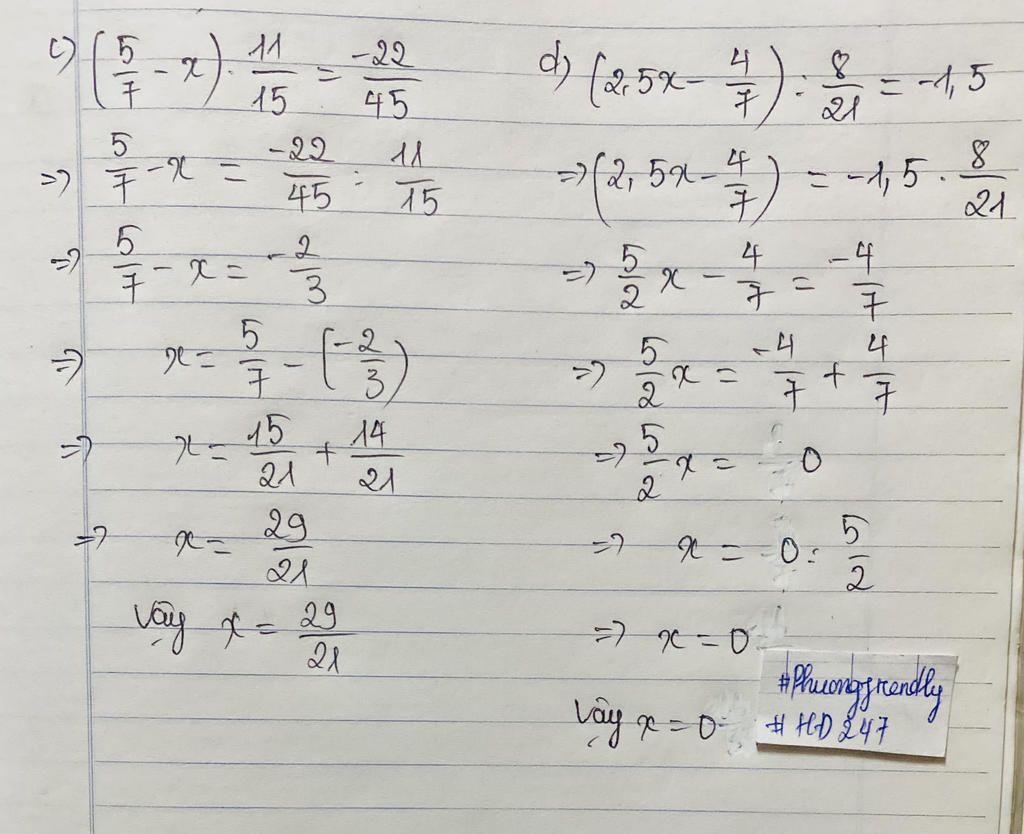 c) (5/7 - x) . 11/15 = -22/45
=> 5/7 - x = -22/45 : 11/15
=> 5/7 - x = -2/3
=> x = 5/7 - (-2/3)
=> x = 15/21 + 14/21
=> x = 29/21
Vậy x = 29/21
d) (2,5x - 4/7) : 8/21 = -1,5
=> (2,5x - 4/7) = -1,5 . 8/21
=> 5/2 x - 4/7 = -4/7
=> 5/2 x = -4/7 + 4/7
=> 5/2 x = 0
=> x = 0 : 5/2
=> x = 0
Vậy x = 0
#Phuongfrendly
# HD 247